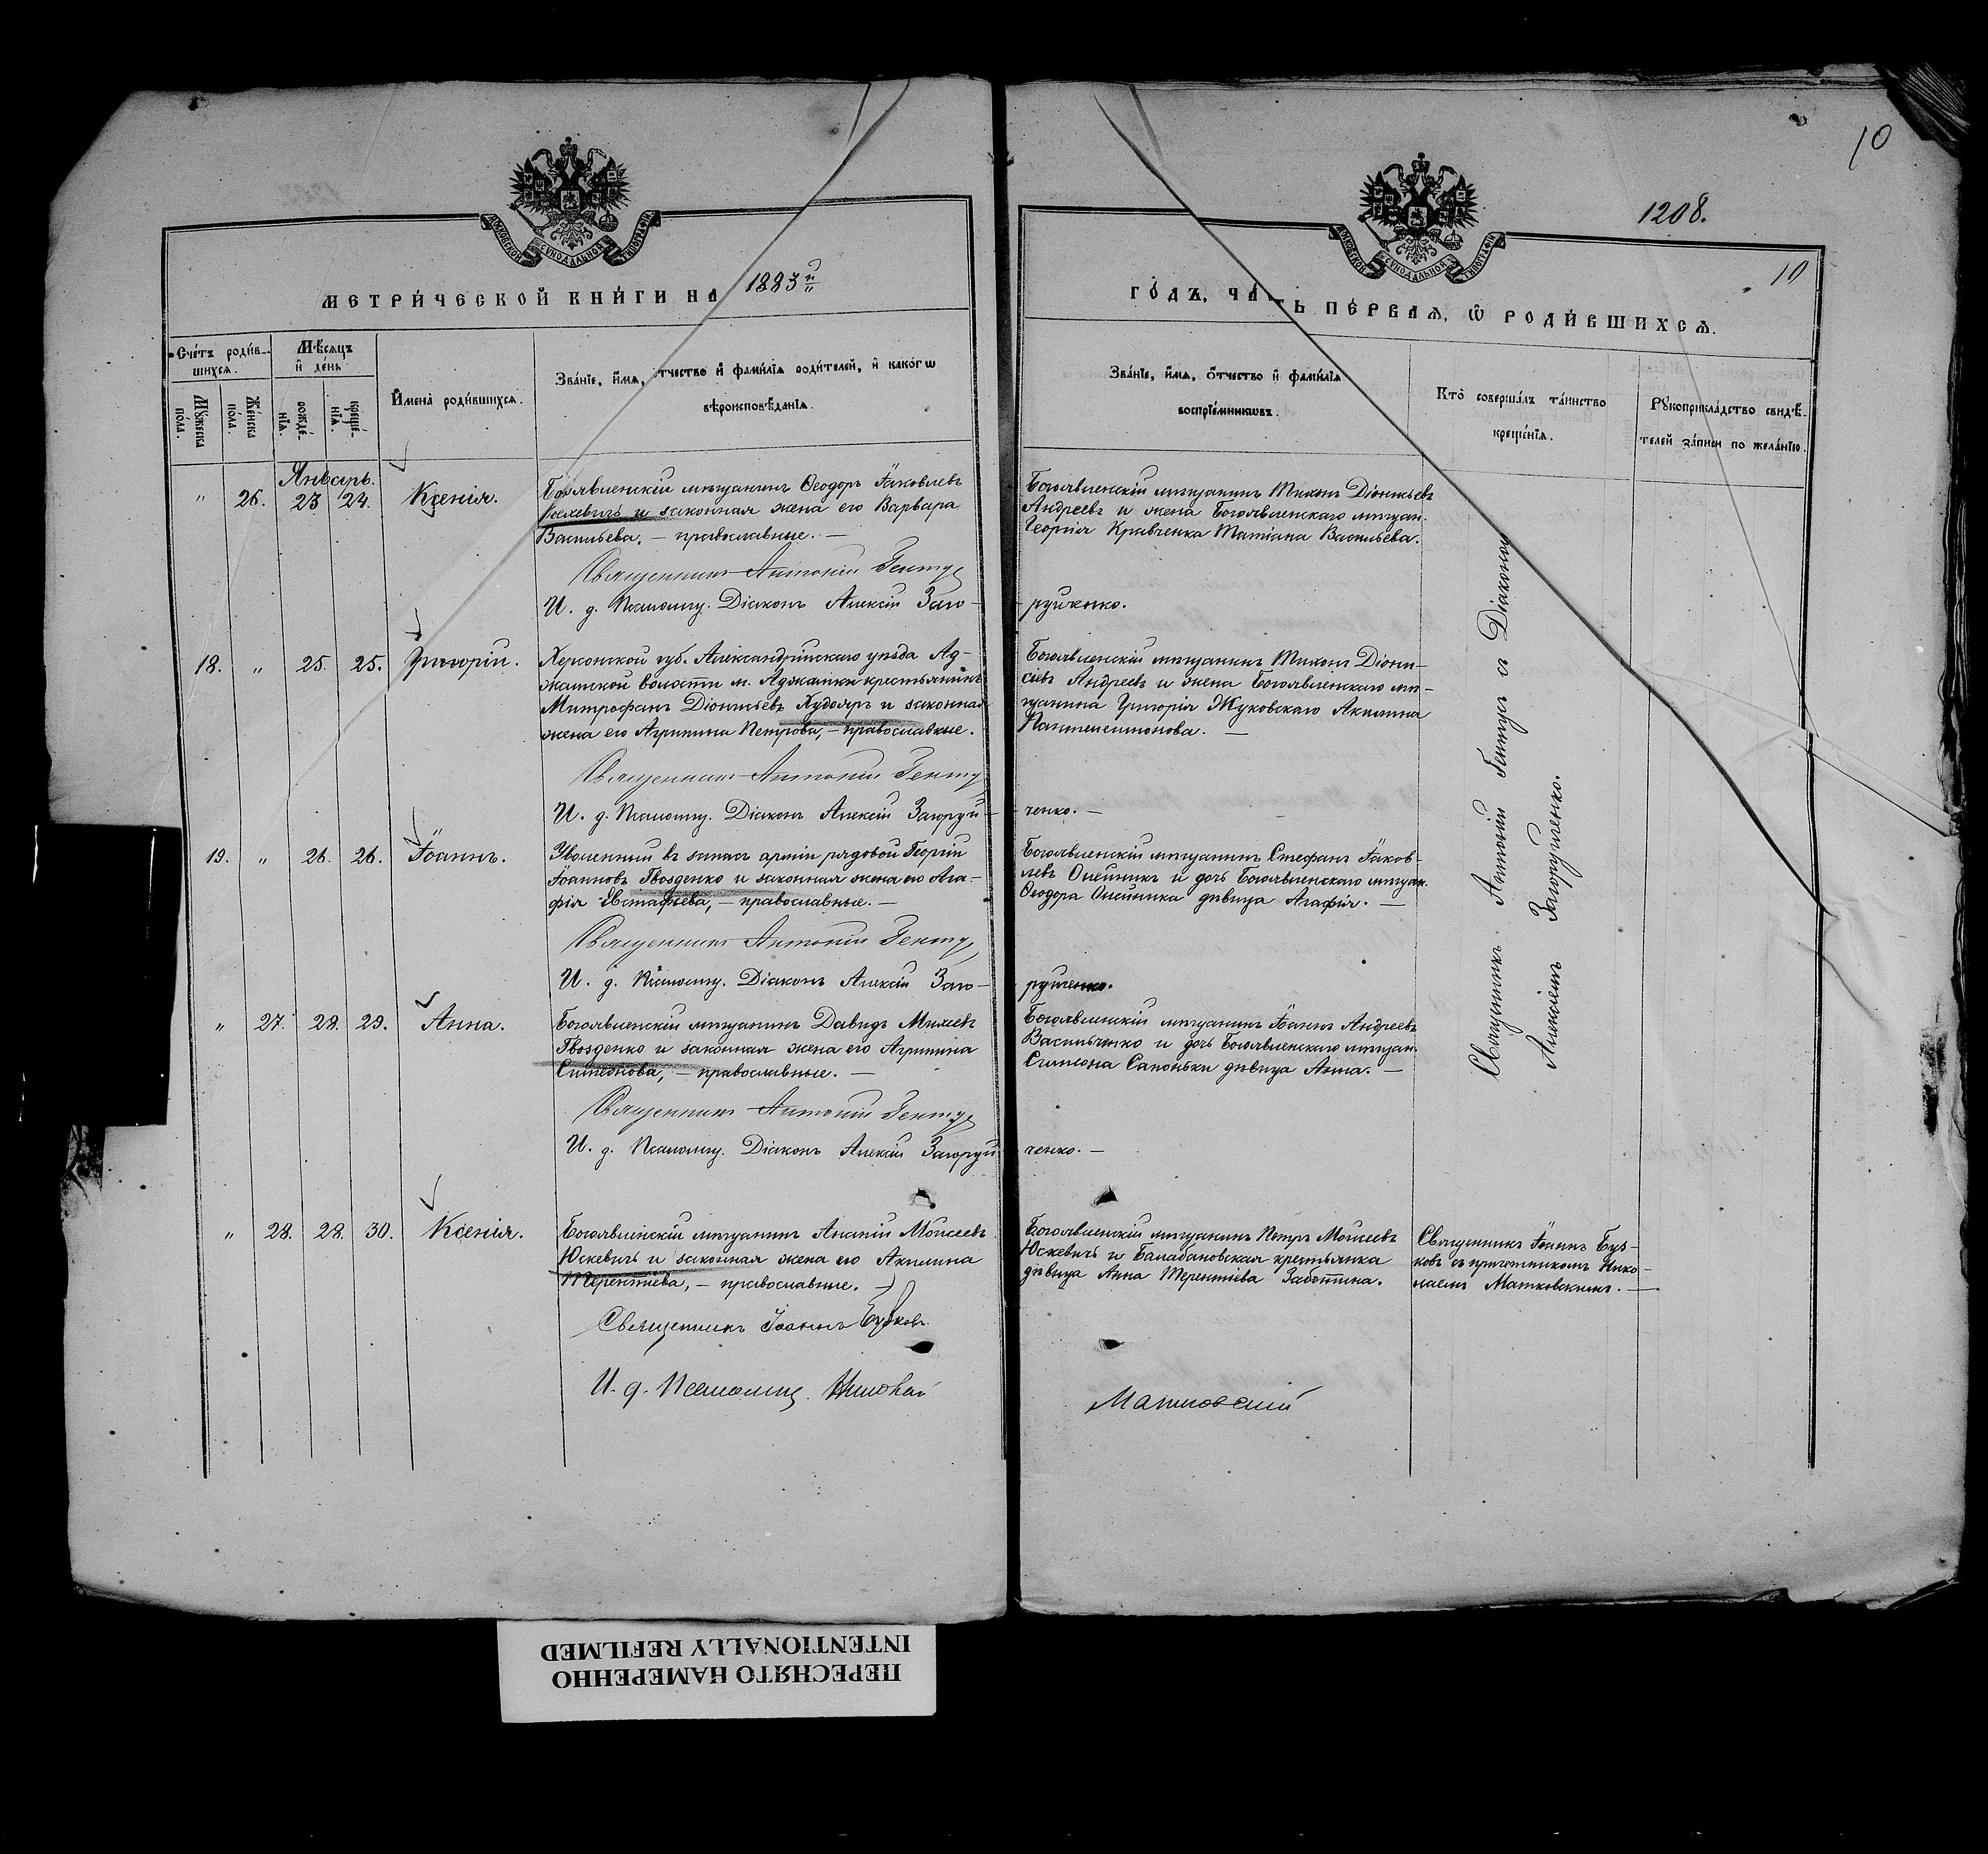 10
1208.
10
МОСКОВСКОЙ СѴНОДАЛЬНОЙ ТИПОГРАФІИ
МОСКОВСКОЙ СѴНОДАЛЬНОЙ ТИПОГРАФІИ
МЕТРИ́ЧЕСКОЙ КНИ́ГИ НА 1883й
ГО́ДЪ, ЧА́СТЬ ПЕ́РВАЯ, Ѡ РОДИ́ВШИХСЯ.
Сче́тъ роди́вшихся.
Мѣ́сяцъ и де́нь
Мꙋ́жеска по́ла.
Же́нска по́ла.
рожде́нїя.
креще́нїя.
Имена̀ роди́вшихся.
Зва́нїе, и́мя, о́тчество и фами́лїя роди́телей, и како́гѡ
вѣроисповѣ́данїя.
Зва́нїе, и́мя, о́тчество и фами́лїя
воспрїе́мникѡвъ.
Кто̀ соверша́лъ та́инство
креще́нїя.
Рꙋкоприкла́дство свидѣ́-
телей за́писи по жела́нїю.
Январь.
" 26. 23 24. Ксенія.
Богоявленскій мѣщанинъ Ѳеодоръ Іаковлевъ
и законная жена его Варвара
Васильева, – православные. –
Священникъ Антоній Генту
И. д. Псаломщ. Діаконъ Алексій Заго-
Богоявленскій мѣщанинъ Тихонъ Діонисьевъ
Андреевъ и жена Богоявленскаго мѣщан.
Георгія Кравченка Татіана Васильева.
руйченко.
18. " 25. 25. Григорій.
Херсонской губ. Александрійскаго уѣзда Ад-
жамской волости м. Аджамки крестьянинъ
Митрофанъ Діонисьевъ Худояръ и законная
жена его Агрипина Петрова, – православные.
Священникъ Антоній Генту
И. д. Псаломщ. Діаконъ Алексій Загоруй-
Богоявленскій мѣщанинъ Тихонъ Діони-
сіевъ Андреевъ и жена Богоявленскаго мѣ-
щанина Григорія Жуковскаго Акилина
Пантелеимонова. –
ченко. –
19. " 26. 26. Іоаннъ.
Уволенный въ запасъ арміи рядовой Георгій
Іоанновъ Гвозденко и законная жена его Ага-
фія Евстафьева, – православные. –
Священникъ Антоній Генту
И. д. Псаломщ. Діаконъ Алексій Заго-
Богоявленскій мѣщанинъ Стефанъ Іаков-
левъ Олейникъ и дочь Богоявленскаго мѣщан.
Ѳеодора Олейника дѣвица Агафія. –
руйченко.
" 27. 28. 29. Анна.
Богоявленскій мѣщанинъ Давидъ Михеевъ
Гвозденко и законная жена его Агрипина
Симеонова, – православные. –
Священникъ Антоній Генту
И. д. Псаломщ. Діаконъ Алексій Загоруй
Богоявленскій мѣщанинъ Іоаннъ Андреевъ
Васильченко и дочь Богоявленскаго мѣщан.
Симеона Сапоньки дѣвица Анна. –
ченко. –
Священникъ Антоній Гентуъ съ Діаконом
Алексіемъ Загоруйченко.
" 28. 28. 30. Ксенія.
Богоявленскій мѣщанинъ Ананій Моисеевъ
Юскевичъ и законная жена его Акилина
Терентіева, – православные. –
Священникъ Іоаннъ Бузковъ
И. д. Псаломщ. Николай
Богоявленскій мѣщанинъ Петръ Моисеевъ
Юскевичъ и Балабановская крестьянка
дѣвица Анна Терентіева Заботина.
Матковскій
Священникъ Іоаннъ Буз-
ковъ съ причетникомъ Нико-
лаемъ Матковскимъ. –
ПЕРЕСНЯТО НАМЕРЕННО
INTENTIONALLY REFILMED